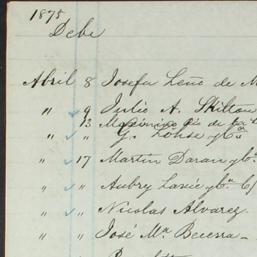 1875
Debe
Abril 8 Josefa Leño de M
" 9 Julio A. Skilton
13 Maximino Rio de la
" " G. Lohse y Ca
" 17 Martin Daran y Ca
" " Aubry Lavié y Ca
" " Nicolas Alvarez
" " José Ma Becerra